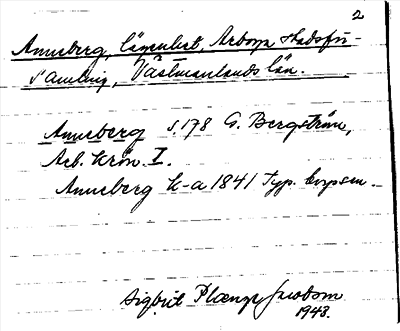 2
Anneberg, lägenhet, Arboga stadsför-
samling, Västmanlands län.
Anneberg s. 178 G. Bergström,
Arb. krön. I.
Anneberg k-a 1841 Typ.
Sigbrit Plænge Jacobson
1948.